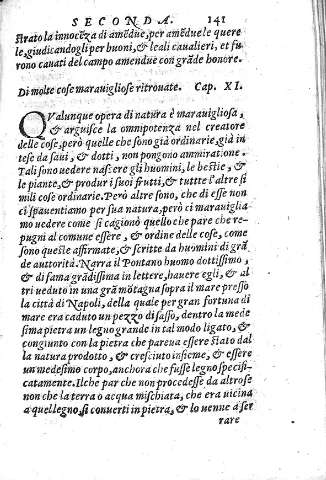 SECONDA. 141
strato la innocẽza di amẽdue, per amẽdue le quere
le, giudicandogli per buoni, & leali caualieri, et fu
rono cauati del campo amendue con grãde honore.
Di molte cose marauigliose ritrouate. Cap. XI.
QValunque opera di natura è marauigliosa,
& arguisce la omnipotenza nel creatore
delle cose, però quelle che sono già ordinarie, già in
tese da saui, & dotti, non pongono ammiratione.
Tali sono uedere nascere gli huomini, le bestie, &
le piante, & produr i suoi frutti, & tuttte l'altre si
mili cose ordinarie. Però altre sono, che di esse non
ci spauentiamo per sua natura, però ci marauiglia
mo uedere come si cagionò quello che pare che re-
pugni al comune essere, & ordine delle cose, come
sono queste affirmate, & scritte da huomini di grã
de auttorità. Narra il Pontano huomo dottissimo,
& di fama grãdissima in lettere, hauere egli, & al
tri ueduto in una grã mõtagna sopra il mare presso
la città di Napoli, della quale per gran fortuna di
mare era caduto un pezzo di sasso, dentro la mede
sima pietra un legno grande in tal modo ligato, &
congiunto con la pietra che pareua essere stato dal
la natura prodotto, & cresciuto insieme, & essere
un medesimo corpo, anchora che fusse legno specifi-
catamente. Ilche par che non procedesse da altro se
non che la terra o acqua mischiata, che era uicina
a quel legno, si conuerti in pietra, & lo uenne a ser
rare